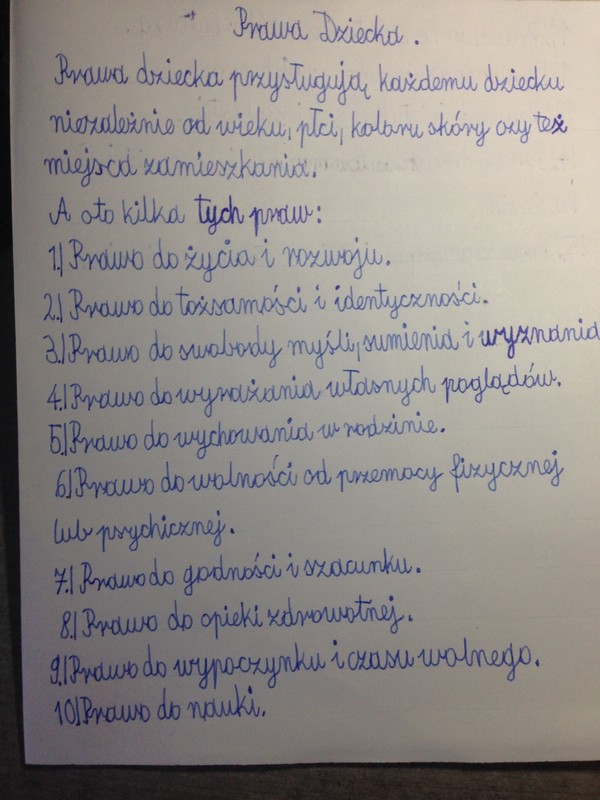 Prawa Dziecka.
Prawa dziecka przysługują każdemu dziecku
niezależnie od wieku, płci, koloru skóry czy też
miejsca zamieszkania.
A oto kilka tych praw:
1.) Prawo do życia i rozwoju.
2.) Prawo do tożsamości i identyczności.
3.) Prawo do swobody myśli, sumienia i wyznania
4.) Prawo do wyrażania własnych poglądów.
5) Prawo do wychowania w rodzinie.
6) Prawo do wolności od przemocy fizycznej
lub psychicznej.
7.) Prawo do godności i szacunku.
8.) Prawo do opieki zdrowotnej.
9.) Prawo do wypoczynku i czasu wolnego.
10) Prawo do nauki.